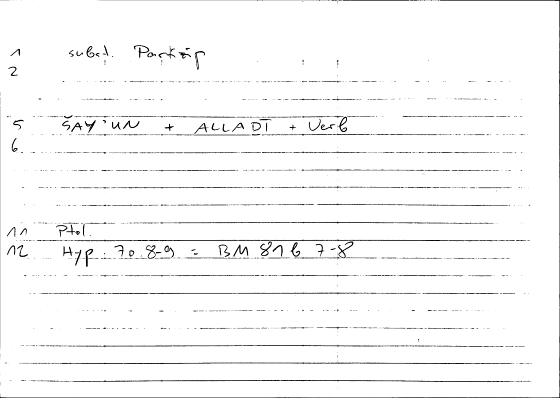 1 subst. Partizip
2
5 ŠAY'UN + ALLADĪ + Verb
6.
11 Ptol.
12 Hyp. 70.8-9 = BM 81b 7-8